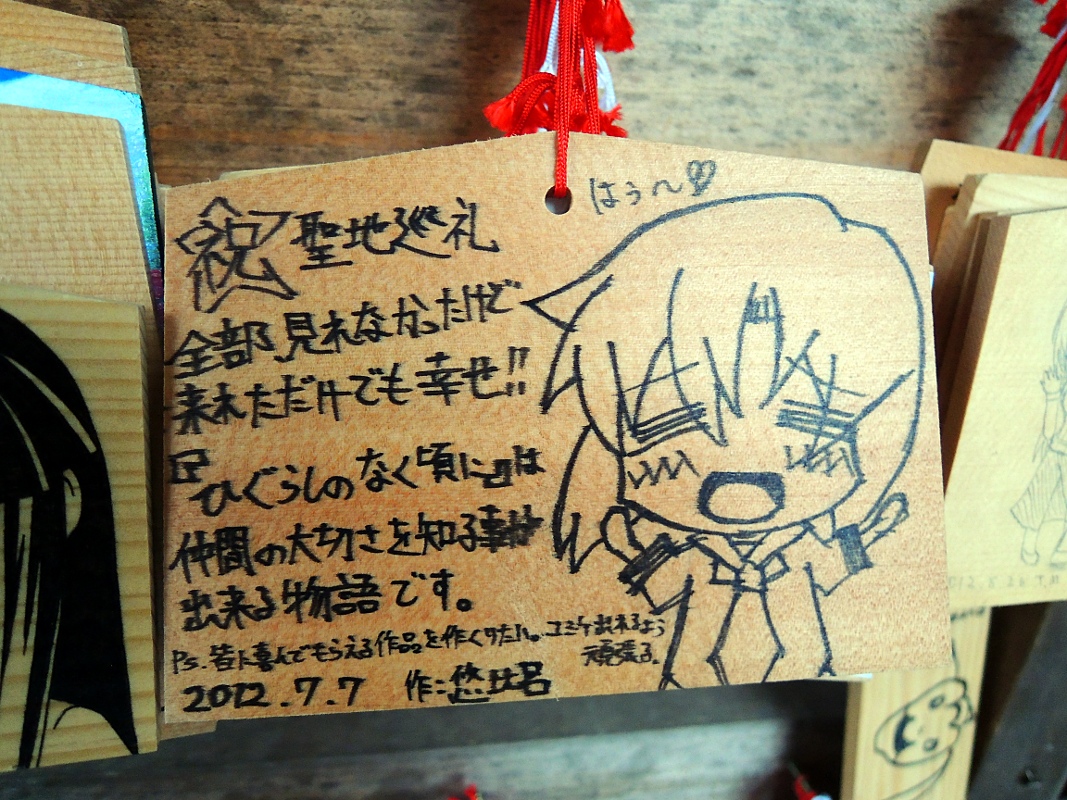 はぅ〜♡
祝 聖地巡礼
全部、見れなかったけど
来れただけでも幸せ!!
『ひぐらしのなく頃に』は
仲間の大切さを知る
出来る物語です。
Ps. 皆に喜んでもらえる作品を作くりたい。コミケ出れるよう
頑張る。
2012.7.7 作:悠